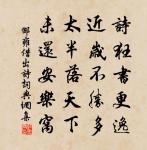 詩狂書更逸
近歲不勝多
太半落天下
未還安樂窩
邵雍借出詩詞典網集